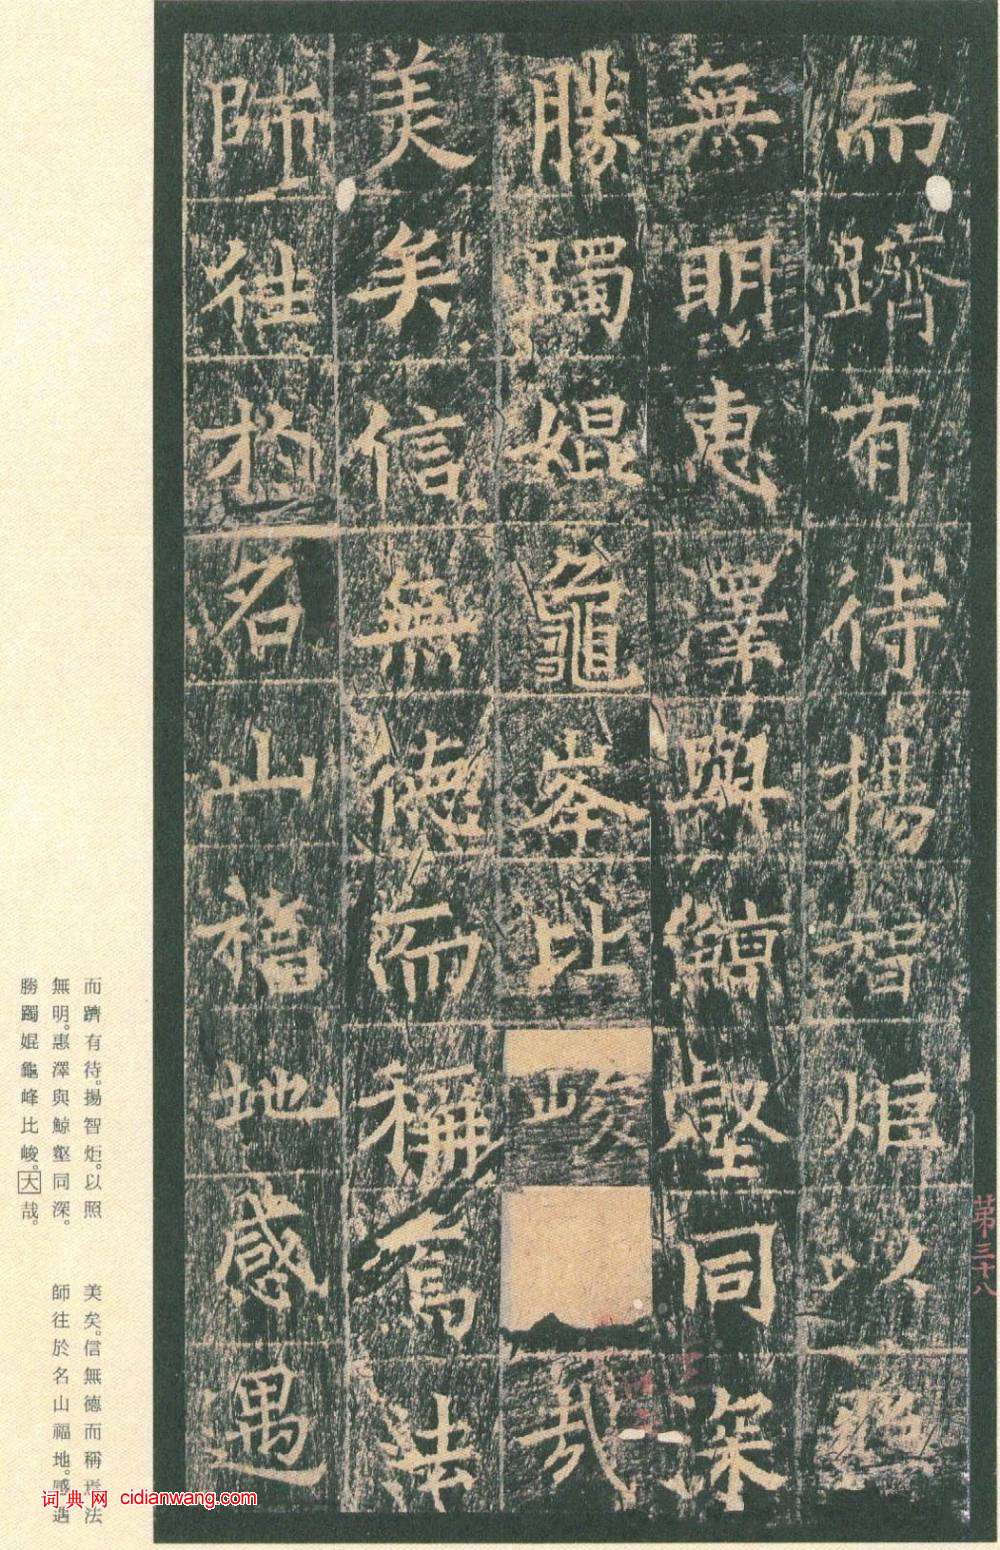 而躋有待揚智炬以照
無明惠澤與鯨壑同深
勝躅焜龜峯比峻哉
美矣信無德而稱焉法
師往於名山福地感遇
第三十八
而躋有待。揚智炬。以照
無明。惠澤與鯨壑同深。
勝躅焜龜峰比峻。大哉。
美矣。信無德而稱焉。法
師往於名山福地。感遇
词典网 cidianwang.com